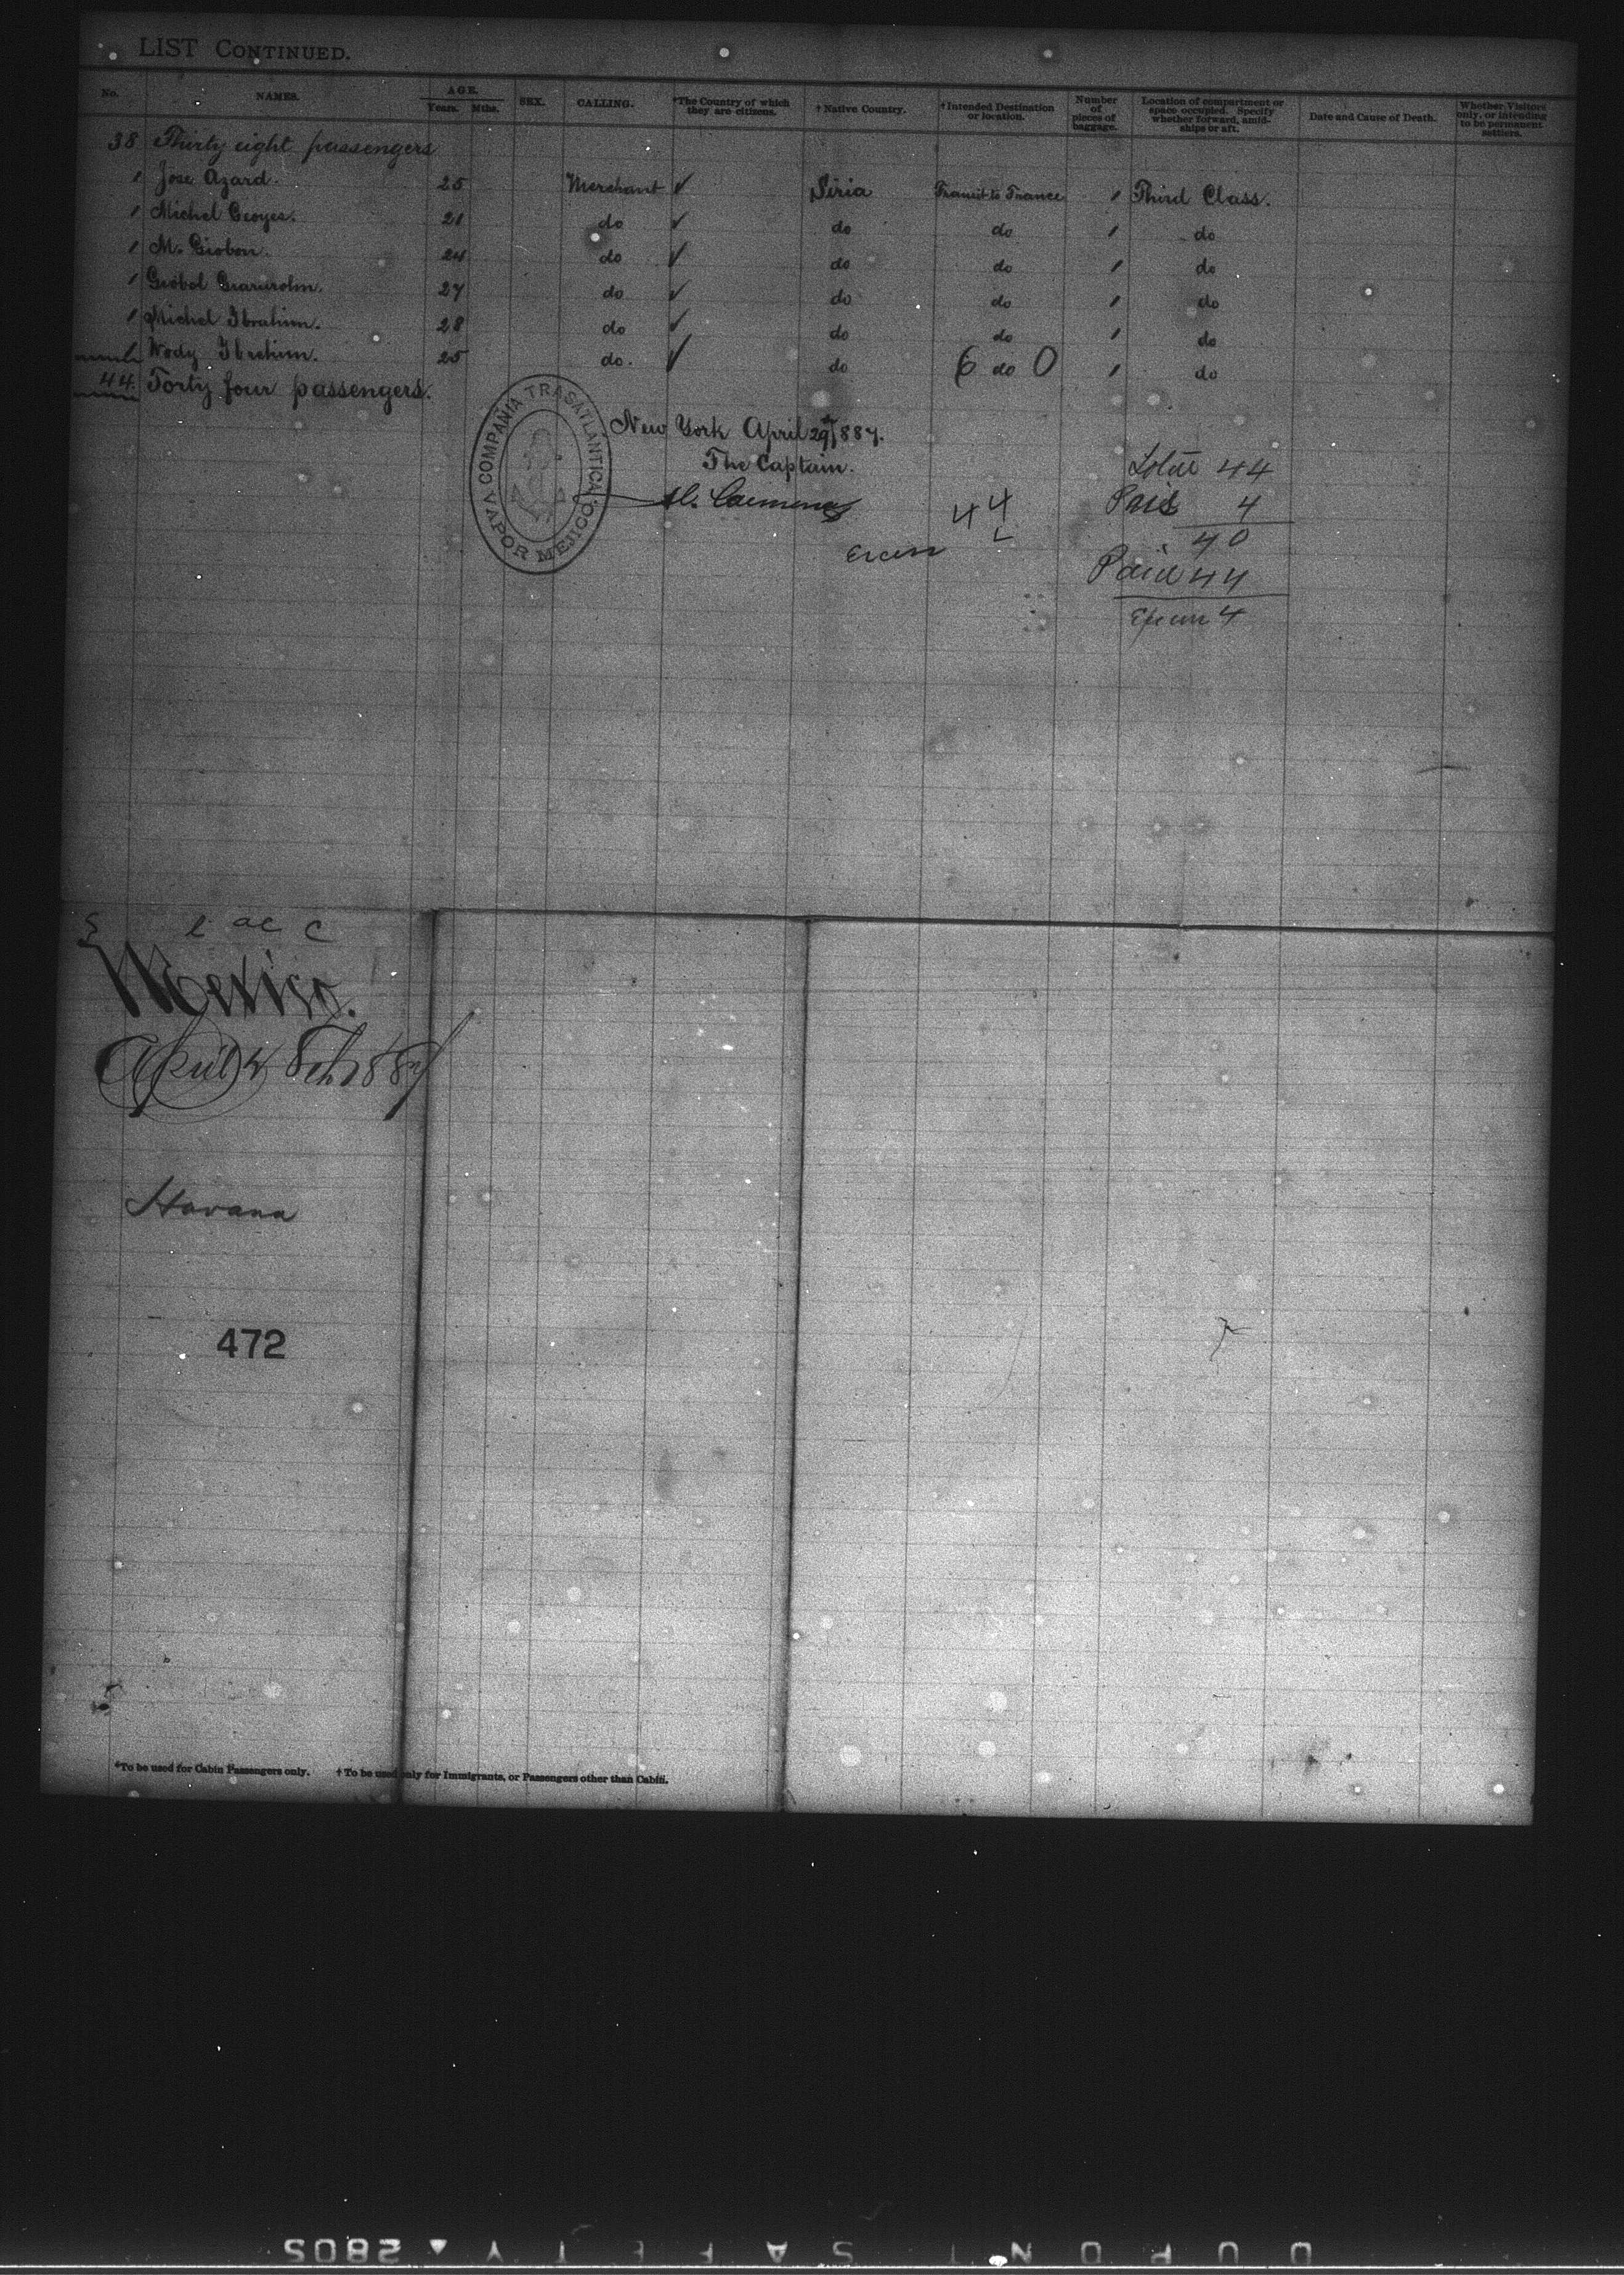 LIST CONTINUED.
No. NAMES. AGE. Years. Mths. SEX. CALLING. *The Country of which they are citizens. † Native Country. † Intended Destination or location. Number of pieces of baggage. Location of compartment or space occupied. Specify whether forward, amidships or aft. Date and Cause of Death. Whether Visitors only, or intending to be permanent settlers.
38 Thirty eight passengers
1 Jose Azard. 25 Merchant ✓ Siria Transit to France 1 Third Class.
1 Michel Geoyes. 21 do ✓ do do 1 do
1 M. Giobon. 24 do ✓ do do 1 do
1 Giobol 27 do ✓ do do 1 do
1 Michel Ibrahim. 28 do ✓ do do 1 do
1 Wody Ibrahim. 25 do. ✓ do 6 do 0 1 do
44. Forty four passengers.
COMPAÑIA TRASATLANTICA
VAPOR MEJICO.
New York April 29th 1887.
The Captain.
44
44
4
40
Paid 44
4
Mexico.
April 28th 1887
Havana
472
*To be used for Cabin Passengers only. † To be used only for Immigrants, or Passengers other than Cabin.
DUPONT SAFETY ▲ 2805